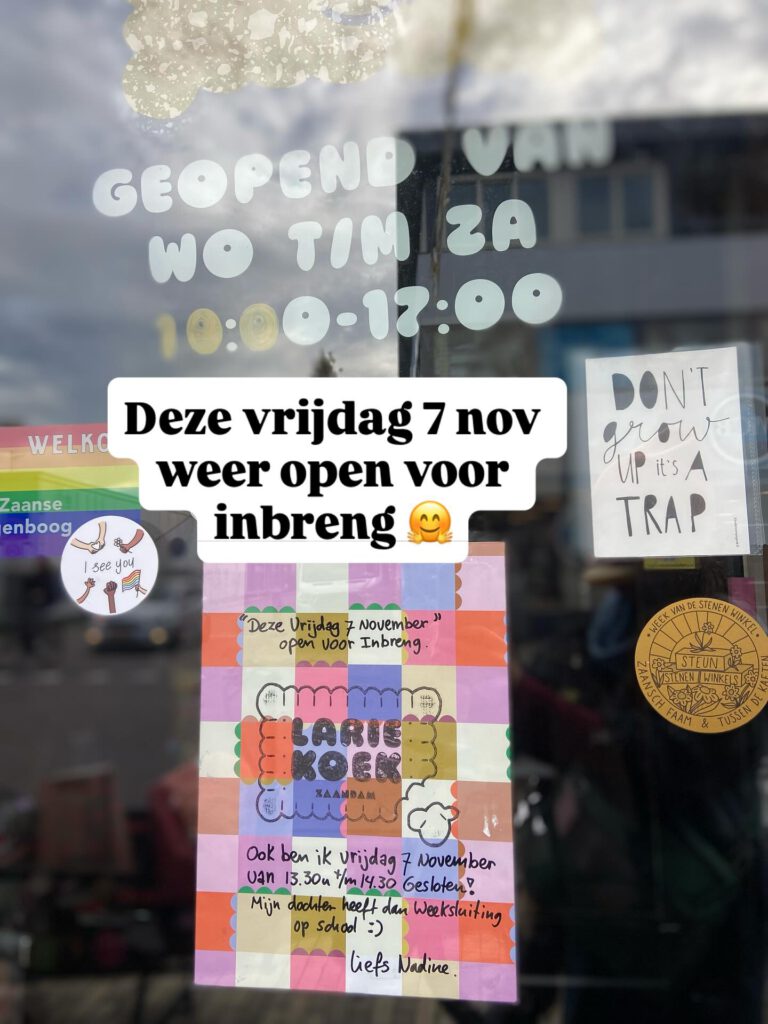 GEOPEND VAN
WO T/M ZA
10:00-17:00
Deze vrijdag 7 nov
weer open voor
inbreng 🤗
DON'T
grow
UP it's A
TRAP
WELKO
Zaanse
genboog
I see you
WEEK VAN DE STENEN WINKEL
STEUN
STENEN WINKELS
ZAANSCH FAAM & TUSSEN DE KAFTEN
"Deze Vrijdag 7 November"
open voor Inbreng.
LARIE
KOEK
ZAANDAM
Ook ben ik vrijdag 7 November
van 13.30u t/m 14.30 Gesloten!
Mijn dochter heeft dan Weeksluiting
op school :)
liefs Nadine.